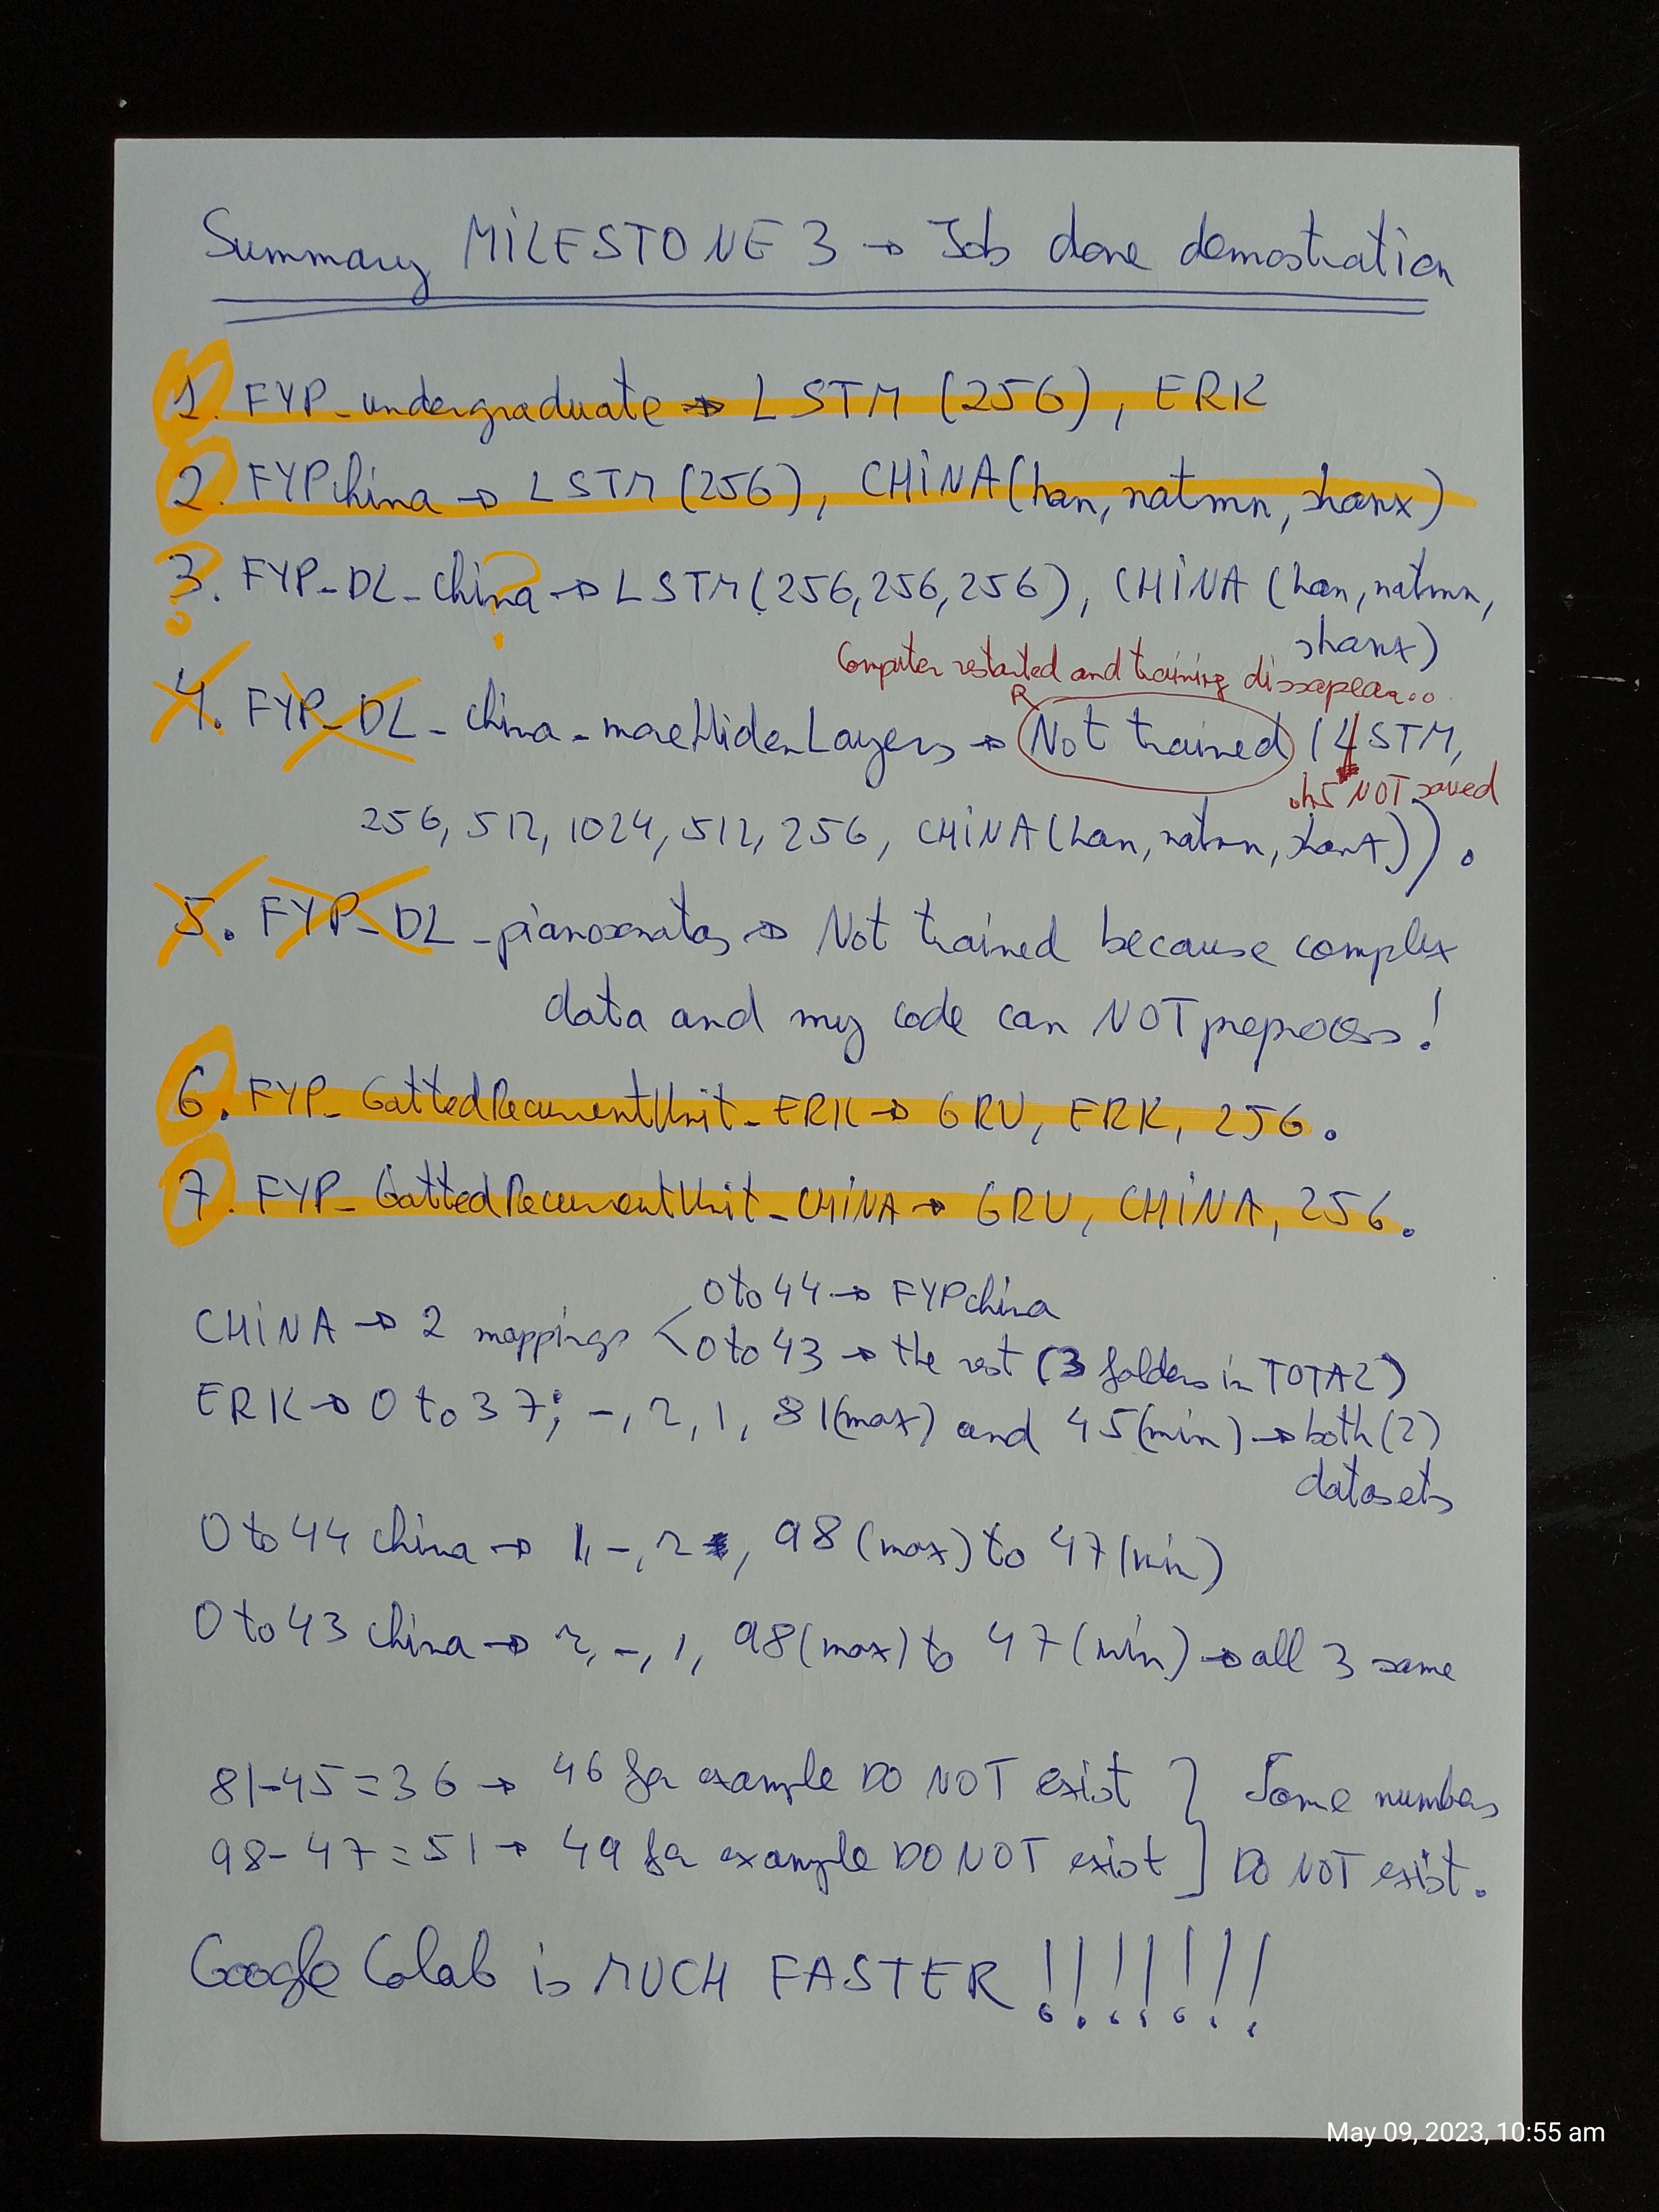 Summary MILESTONE 3 → Job done demostration
1. FYP_undergraduate → LSTM (256), ERK
2. FYPchina → LSTM (256), CHINA (han, natmn, shanx)
3. FYP_DL_china → LSTM (256, 256, 256), CHINA (han, natmn,
shanx)
Computer restarted and training dissapear...
4. FYP_DL_china_moreHidenLayers → Not trained (LSTM,
.h5 NOT saved
256, 512, 1024, 512, 256, CHINA (han, natmn, shanx)).
5. FYP_DL_pianosonatas → Not trained because complex
data and my code can NOT preprocess!
6. FYP_GattedRecurrentUnit_ERK → GRU, ERK, 256.
7. FYP_GattedRecurrentUnit_CHINA → GRU, CHINA, 256.
0 to 44 → FYPchina
CHINA → 2 mappings <
0 to 43 → the rest (3 folders in TOTAL)
ERK → 0 to 37; -, r, 1, 81(max) and 45(min) → both (2)
datasets
0 to 44 china → 1, -, r, 98 (max) to 47 (min)
0 to 43 china → r, -, 1, 98 (max) to 47 (min) → all 3 same
81-45=36 → 46 for example DO NOT exist } Some numbers
98-47=51 → 49 for example DO NOT exist } DO NOT exist.
Google Colab is MUCH FASTER !!!!!!!
May 09, 2023, 10:55 am